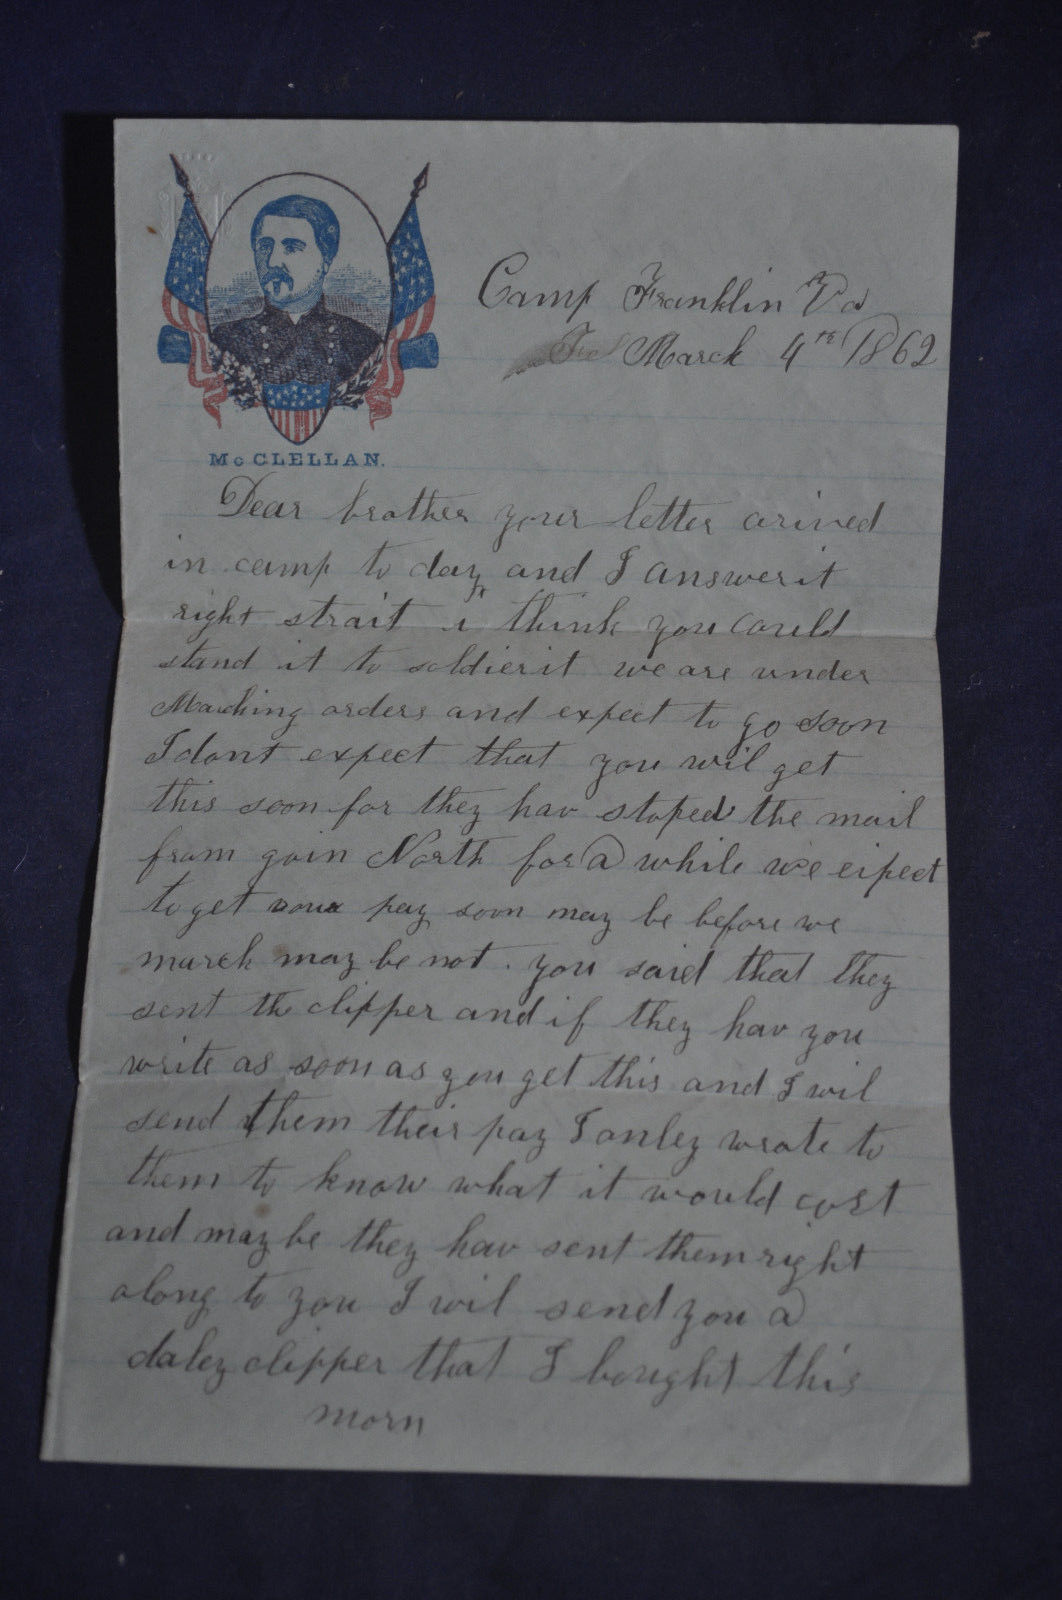 Camp Franklin Va
March 4th 1862
McCLELLAN.
Dear brother your letter arived
in camp to day and I answer it
right strait i think you could
stand it to soldier it we are under
Marching orders and expect to go soon
I dont expect that you wil get
this soon for they hav stoped the mail
from goin North for a while we eipect
to get our pay soon may be before we
march may be not. you said that they
sent the clipper and if they hav you
write as soon as you get this and I wil
send them their pay I onley wrote to
them to know what it would cost
and may be they hav sent them right
along to you I wil send you a
daley clipper that I bought this
morn